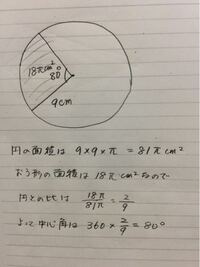 18πcm²
80°
9cm
円の面積は 9×9×π = 81π cm²
おうぎ形の面積は 18π cm² なので
円との比は 18π/81π = 2/9
よって中心角は 360×2/9 = 80°